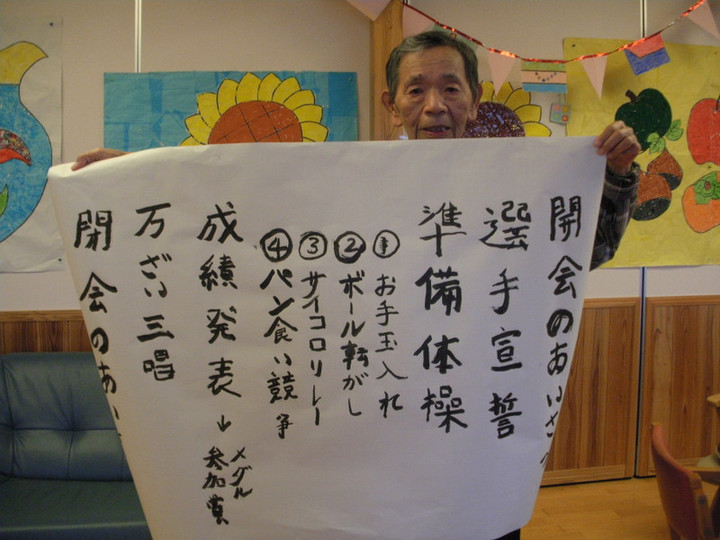 開会のあいさつ
選手宣誓
準備体操
① お手玉入れ
② ボール転がし
③ サイコロリレー
④ パン食い競争
成績発表→メダル
参加賞
万ざい三唱
閉会のあい